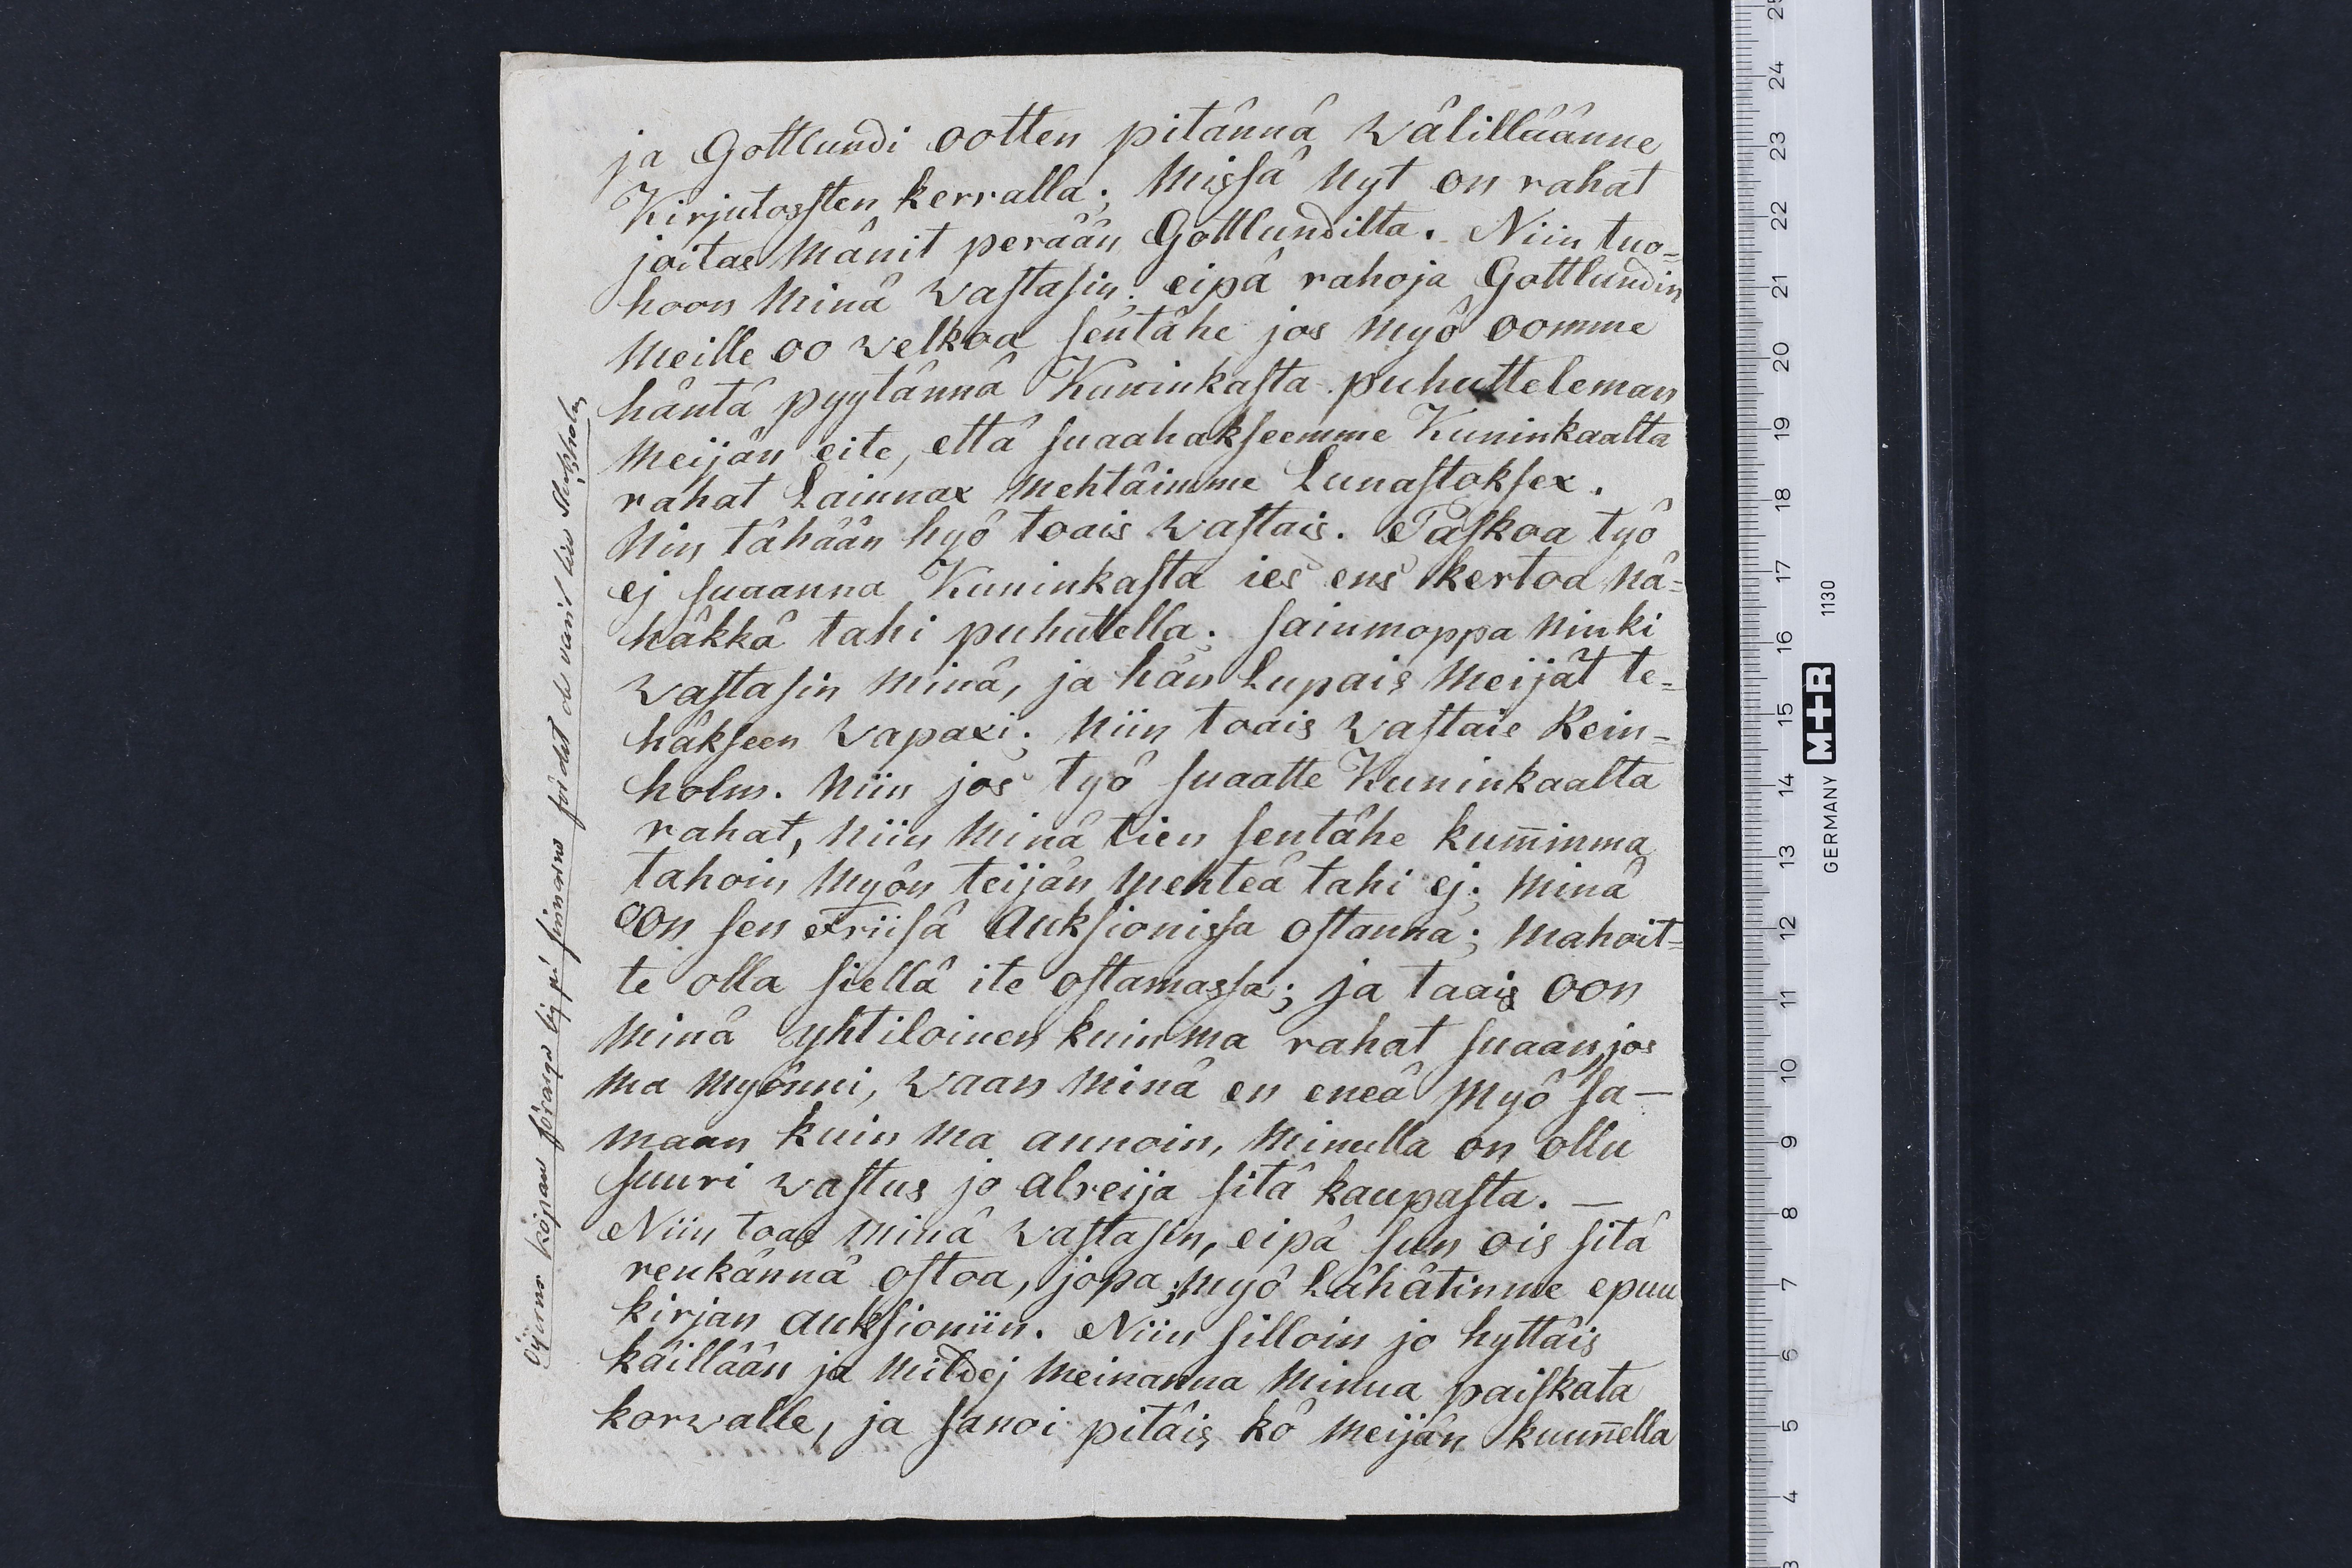 ja Gottlundi ootten pitännä wälilläänne
Kirjutossten kerralla; Missä Nyt on rahat
joitas Mänit perään Gottlundilta. Niin tuo=
hoon Minä wastasin; eipä rahoja Gottlundin
Meille oo welkoa sentähe jos Myö oomme
häntä pyytännä Kuninkasta puhutteleman
Meijän eite, että suaahakseemme Kuninkaalta
rahat Lainnax Mehtäimme Lunastoksex.
Nin tähään hyö toais wastais. Paskoa työ
ej suaanna Kuninkasta ies ens kertoa nä=
häkkä tahi puhutella. Sainmoppa Ninki
wastasin Minä, ja hän Lupais Meijät te=
häkseen wapaxi; Niin toais wastais Rein=
holm. Niin jos työ suaatte Kuninkaalta
rahat, Niin Minä tien sentähe kum̅inma
tahoin Myön teijän Mehteä tahi ej; Minä
oon sen Friisä Auksionissa ostanna; Mahoit=
te olla siellä ite ostamassa; ja taais oon
Minä yhtiloinen kuin ma rahat suaan, jos
ma Myönni, waan Minä en eneä Myö sa—
maan kuin ma annoin, Minulla on ollu
suuri wastus jo alreija sitä kaupasta. —
Niin toas Minä wastasin, eipä sun ois sitä
renkännä ostoa, jopa Myö Lähätimme epuu
kirjan auksioniin. Niin silloin jo hyttäis
käillään ja Mildej Meinanna Minua paiskata
korwalle, ja sanoi pitäis kö Meijän kuun̅ella
köpare förarga sig på finnarne för det de varit hos Stockholm